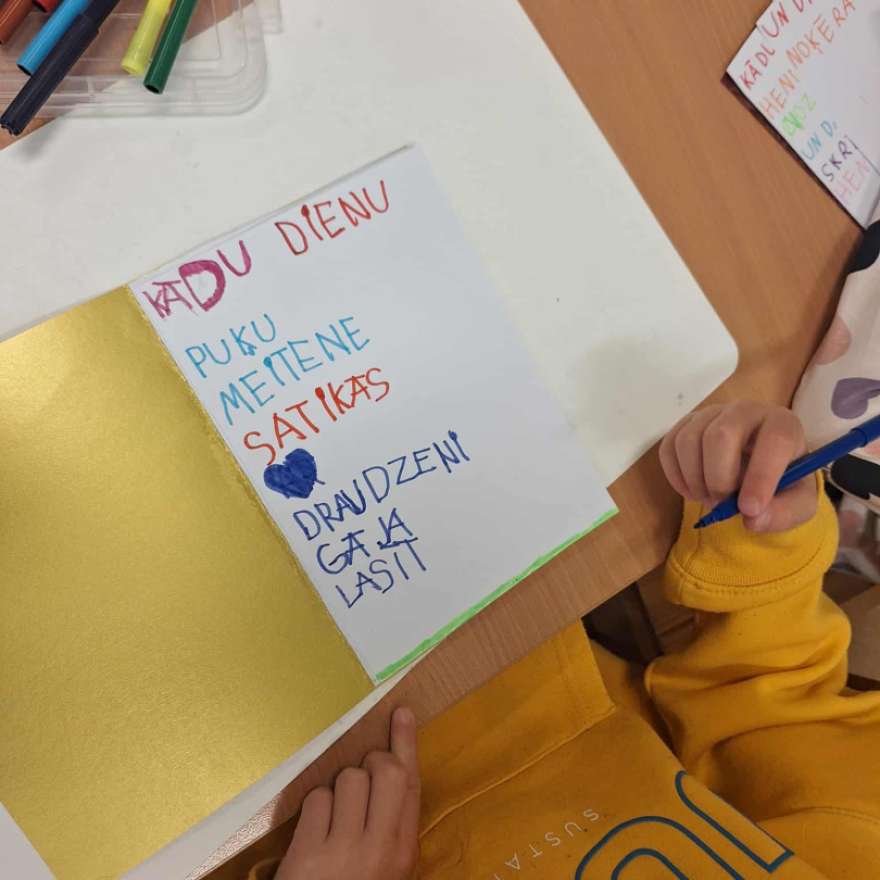 KADU DIENU
PUĶU
MEITENE
SATIKAS
DRAUDZENI
GAJA
LASIT
KĀDU UN
HENI NOKĒRA
UN D.
SKRI
HEN
SUSTA